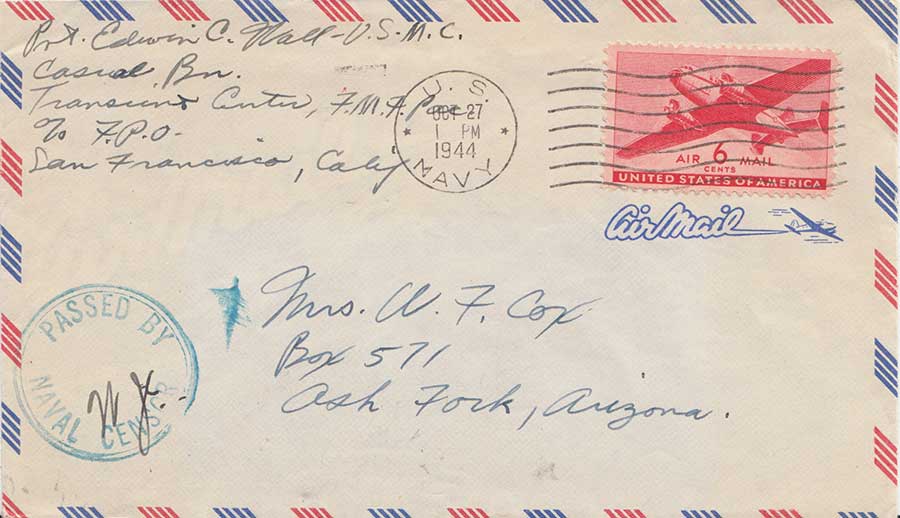 Pvt. Edwin C. Wall-U.S.M.C.
Casual Bn.
Transient Center, F.M.F. Pac
% F.P.O-
San Francisco, Calif
U. S.
OCT 27
1 PM
1944
NAVY
AIR 6 MAIL
CENTS
UNITED STATES OF AMERICA
Air Mail
PASSED BY
NAVAL CENSOR
Mrs. W. F. Cox
Box 571
Ash Fork, Arizona.